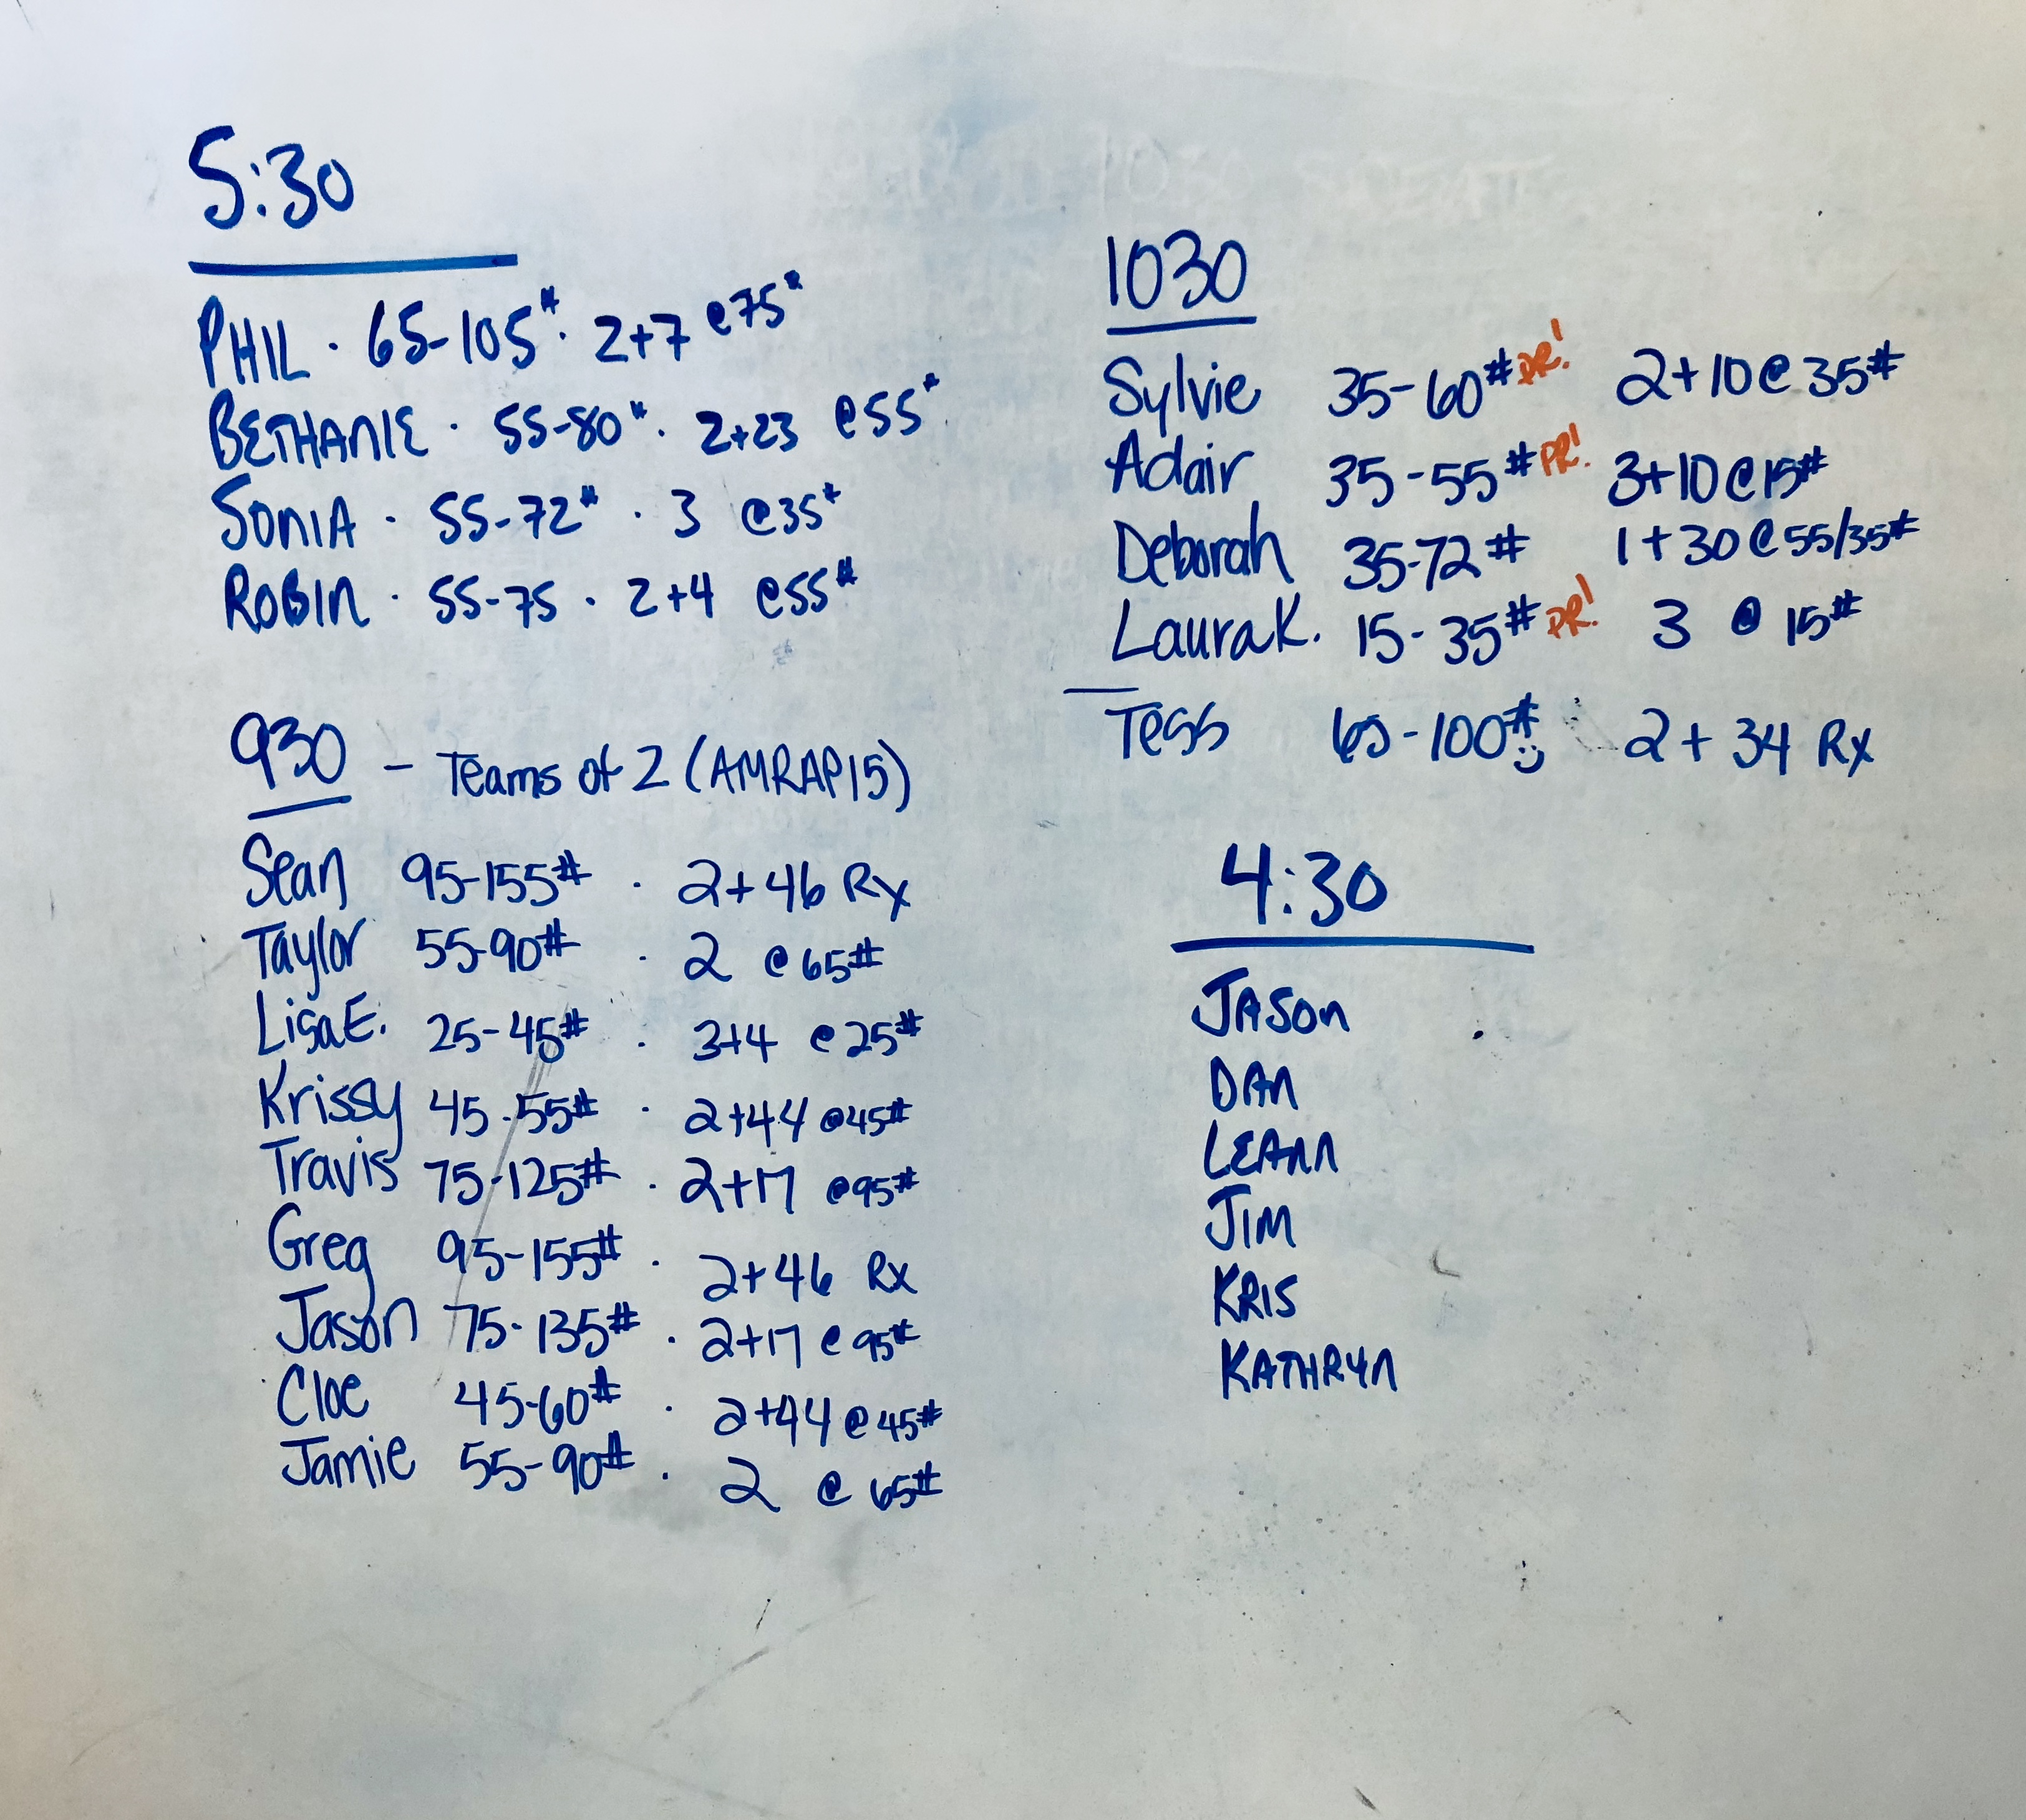 5:30
PHIL · 65-105# · 2+7 @75#
BETHANIE · 55-80# · 2+23 @55#
SONIA · 55-72# · 3 @35#
ROBIN · 55-75 · 2+4 @55#
930 - Teams of 2 (AMRAP15)
Sean 95-155# · 2+46 Rx
Taylor 55-90# · 2 @65#
Lisa E. 25-45# · 3+4 @25#
Krissy 45-55# · 2+44 @45#
Travis 75-125# · 2+17 @95#
Greg 95-155# · 2+46 Rx
Jason 75-135# · 2+17 @95#
Cloe 45-60# · 2+44 @45#
Jamie 55-90# · 2 @65#
1030
Sylvie 35-60# PR! 2+10@35#
Adair 35-55# PR! 3+10@15#
Deborah 35-72# 1+30@55/35#
Laura K. 15-35# PR! 3 @ 15#
Tess 65-100# 2+34 Rx
4:30
JASON
DAN
LEANN
JIM
KRIS
KATHRYN